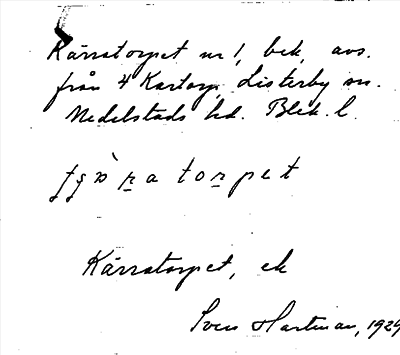 Kärratorpet nr 1, bek, avs.
från 4 Kartorp, Listerby sn.
Medelstads hd. Blek. l.
Kärratorpet, ek
Sven Hartman, 1929